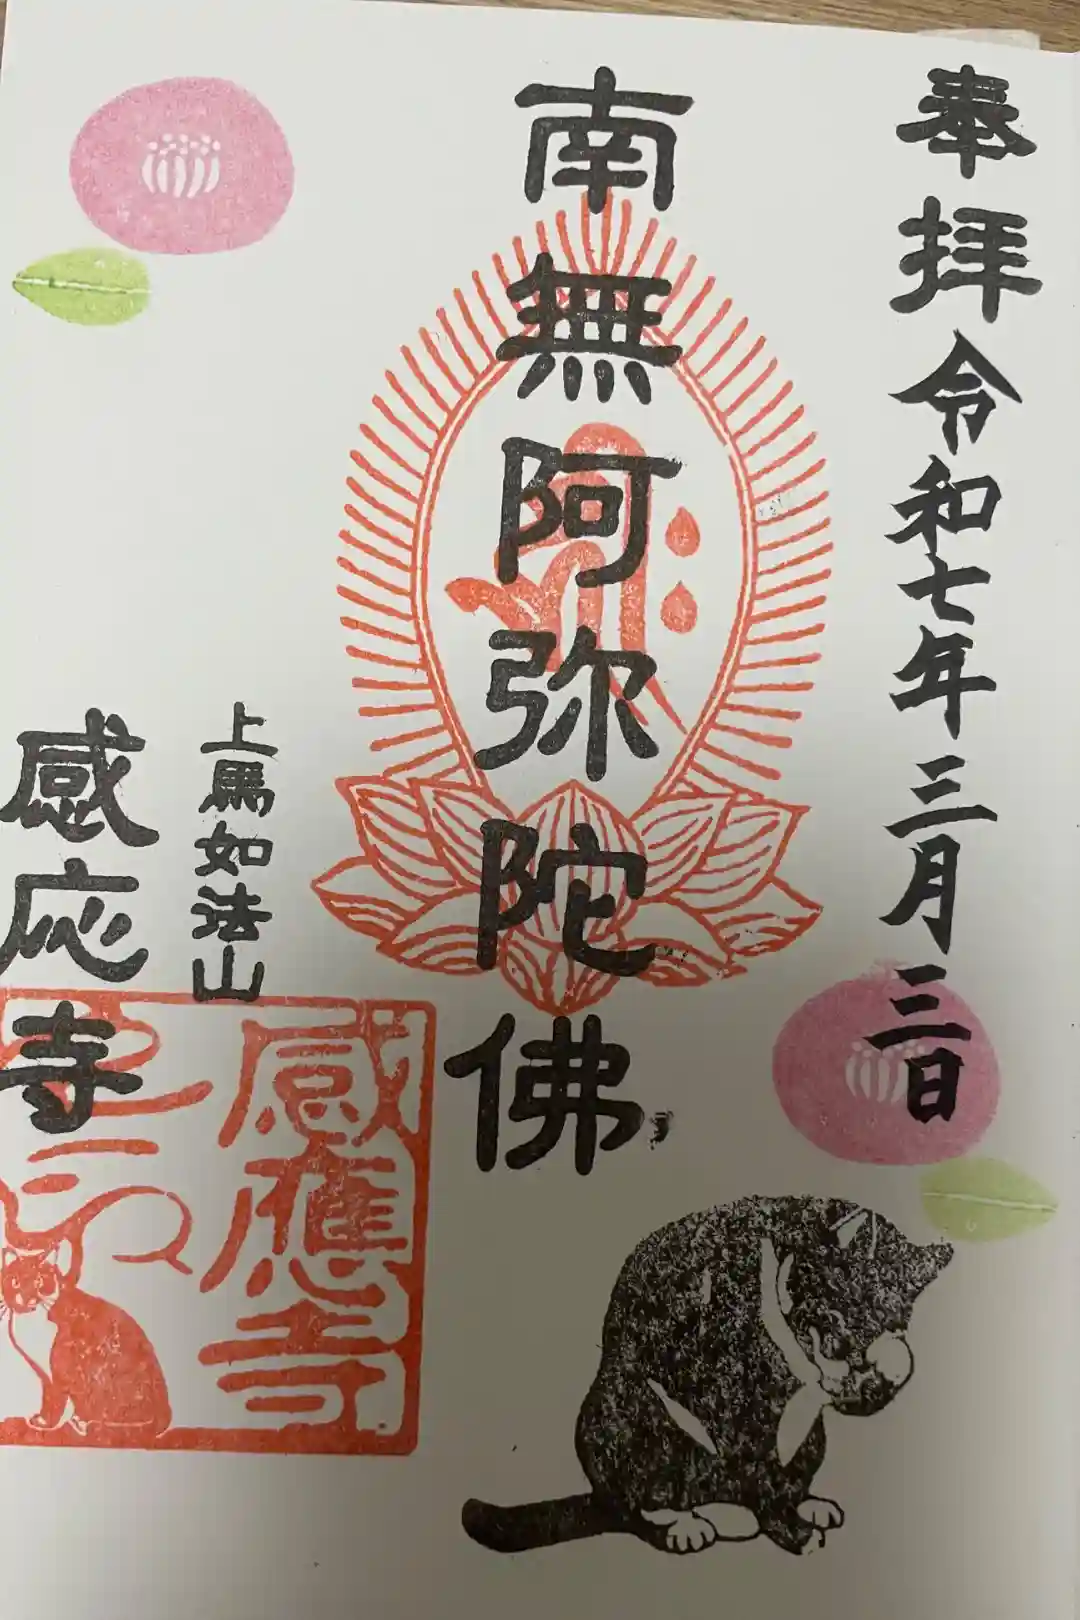 奉拝 令和七年三月三日
南無阿弥陀佛
上馬如法山
感応寺
感應寺